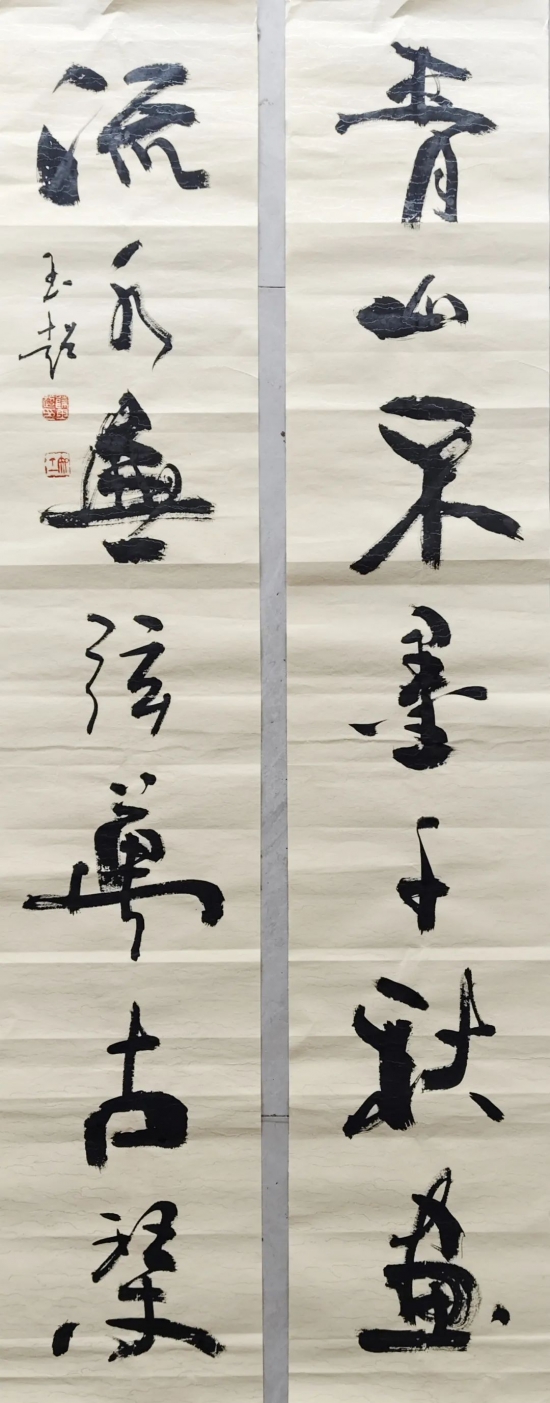 青山不墨千秋画
流水无弦万古琴
玉超